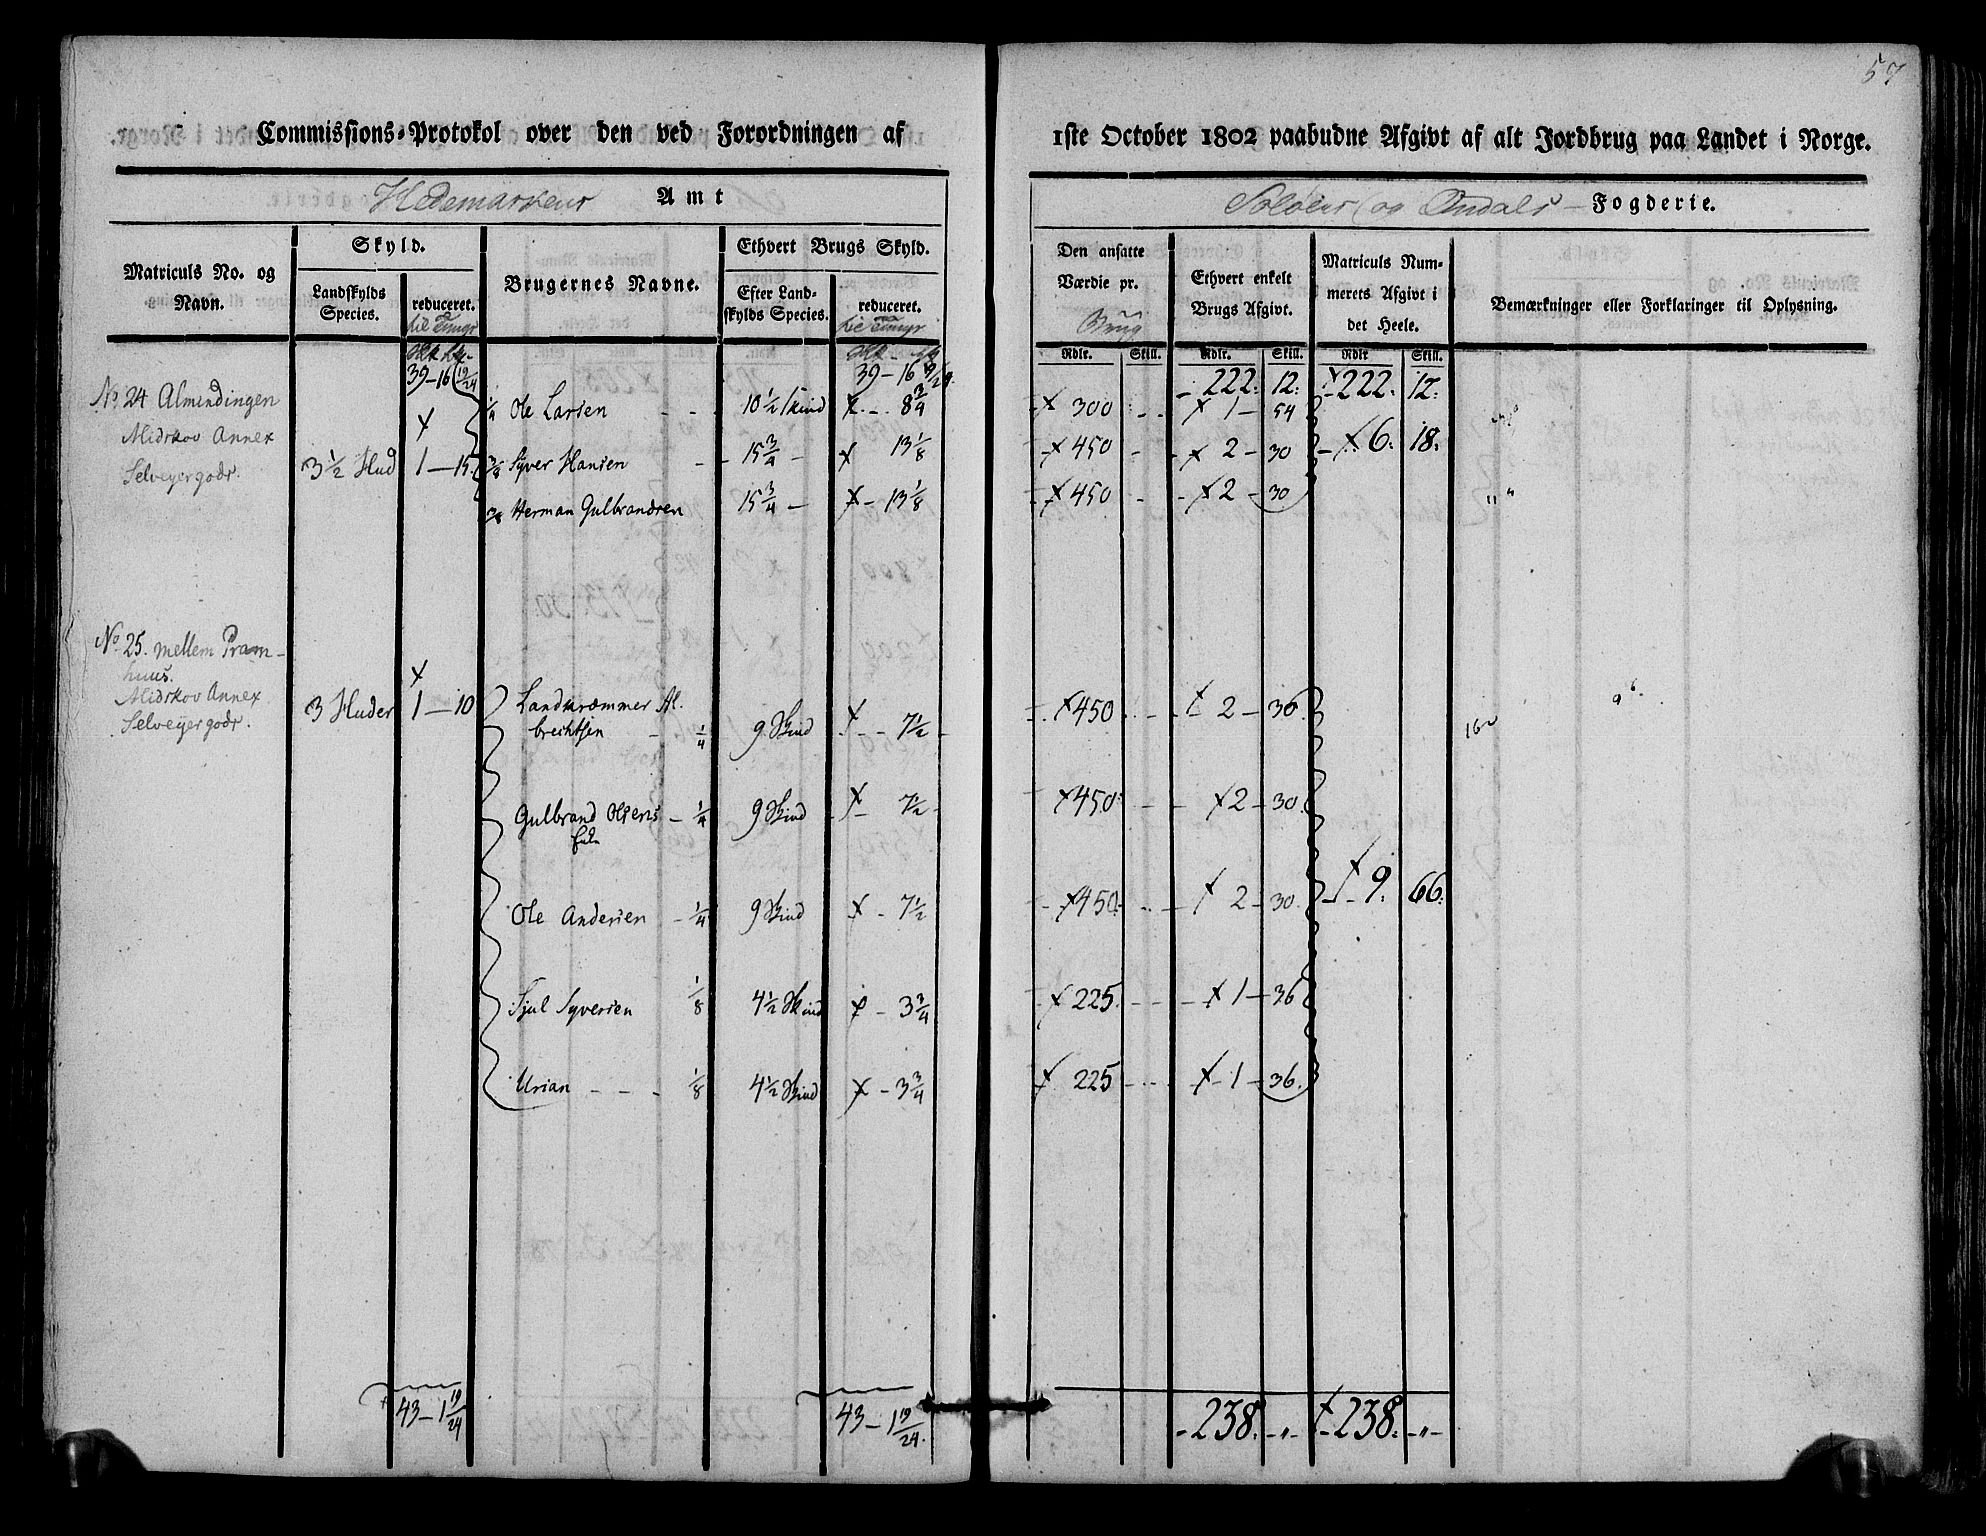 57
Commissions-Protokol over den ved Forordningen af
1ste October 1802 paabudne Afgivt af alt Jordbrug paa Landet i Norge.
Hedemarkens Amt
Soloens og Fogderie.
Matriculs No. og Navn.
Skyld.
Landskylds Species.
reduceret.
til Tunge
Brugernes Navne.
Ethvert Brugs Skyld.
Efter Landskylds Species.
reduceret.
til Tunge
Den ansatte Værdie pr.
Brug
Ethvert enkelt Brugs Afgivt.
Matriculs Nummerets Afgivt i det Heele.
Bemærkninger eller Forklaringer til Oplysning.
Rdlr. Skill. Rdlr. Skill. Rdlr Skill.
39 – 16 19/24 39 – 16 19/24 222. 12. 222. 12.
No 24 Almindingen 1/4 Ole Larsen 10 1/2 Skind 8 3/4 300 1 – 54
Midskov Annex
Selveyergods. 3 1/2 Hud 1 – 15 3/8 Syver Hansen 15 3/4 13 1/8 450 2 – 30 6. 18.
3/8 Herman Gulbrandsen 15 3/4 – 13 1/8 450 2 – 30
No 25. mellem Pram-
huus.
Midskov Annex
Selveyergods. 3 Huder 1 – 10 Al-
brechtsen 1/4 9 Skind 7 1/2 450 2 – 36
Gulbrand Olsens 1/4 9 Skind 7 1/2 450 2 – 30
Enke
Ole Andersen 1/4 9 Skind 7 1/2 450 2 – 30 9. 66.
Sjul Syversen 1/8 4 1/2 Skind 3 3/4 225 1 – 36
Urian 1/8 4 1/2 Skind 3 3/4 225 1 – 36.
43 – 1 19/24 43 – 1 19/24. 238. – „ – 238. – „ –